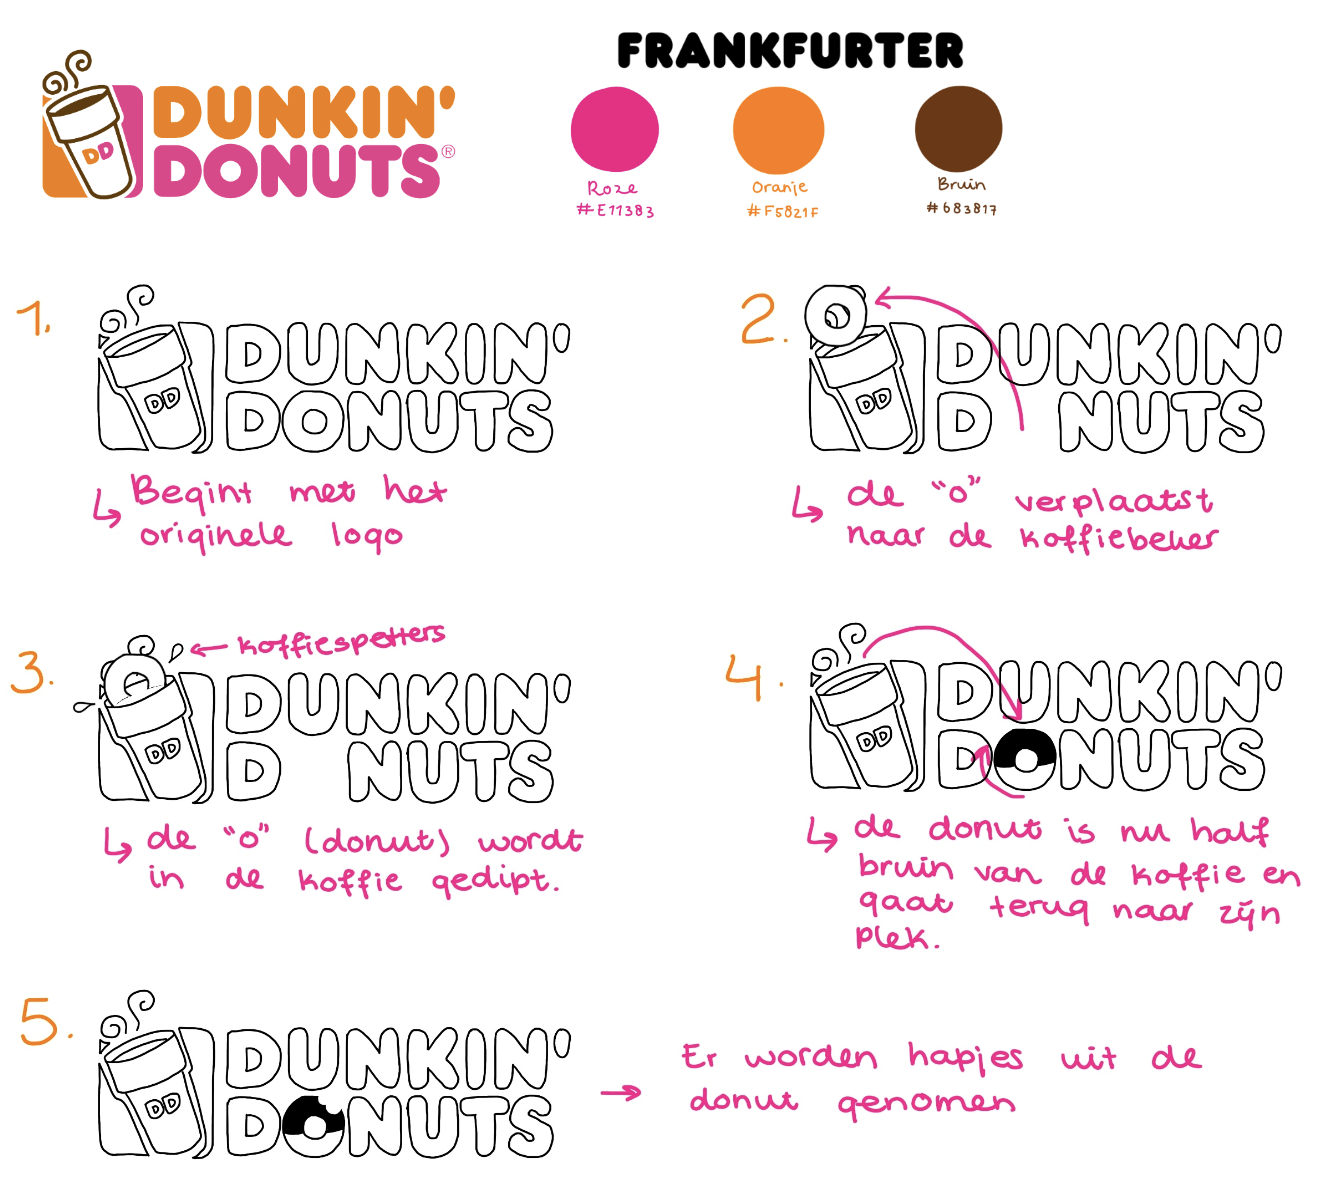 FRANKFURTER
DUNKIN'
DONUTS®
DD
Roze
#E11383
Oranje
#F5821F
Bruin
#683817
1.
DUNKIN'
DONUTS
DD
Begint met het
originele logo
2.
DUNKIN'
D NUTS
DD
de "o" verplaatst
naar de koffiebeker
3.
koffiespetters
DUNKIN'
D NUTS
DD
de "o" (donut) wordt
in de koffie gedipt.
4.
DUNKIN'
DONUTS
DD
de donut is nu half
bruin van de koffie en
gaat terug naar zijn
plek.
5.
DUNKIN'
DONUTS
DD
Er worden hapjes uit de
donut genomen